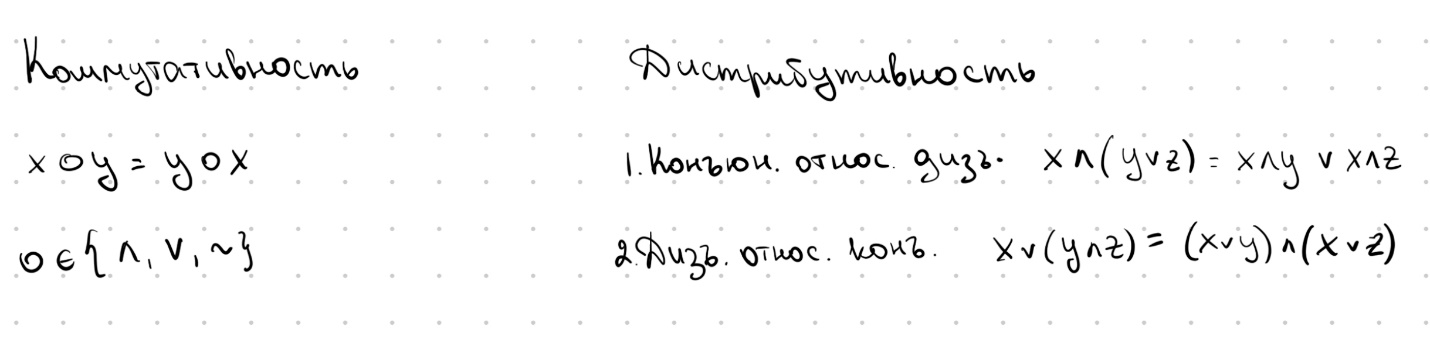 Коммутативность
x o y = y o x
o ∈ { ∧, ∨, ~}
Дистрибутивность
1. Конъюн. относ. дизъ. x ∧ (y ∨ z) = x ∧ y ∨ x ∧ z
2. Дизъ. относ. конъ. x ∨ (y ∧ z) = (x ∨ y) ∧ (x ∨ z)